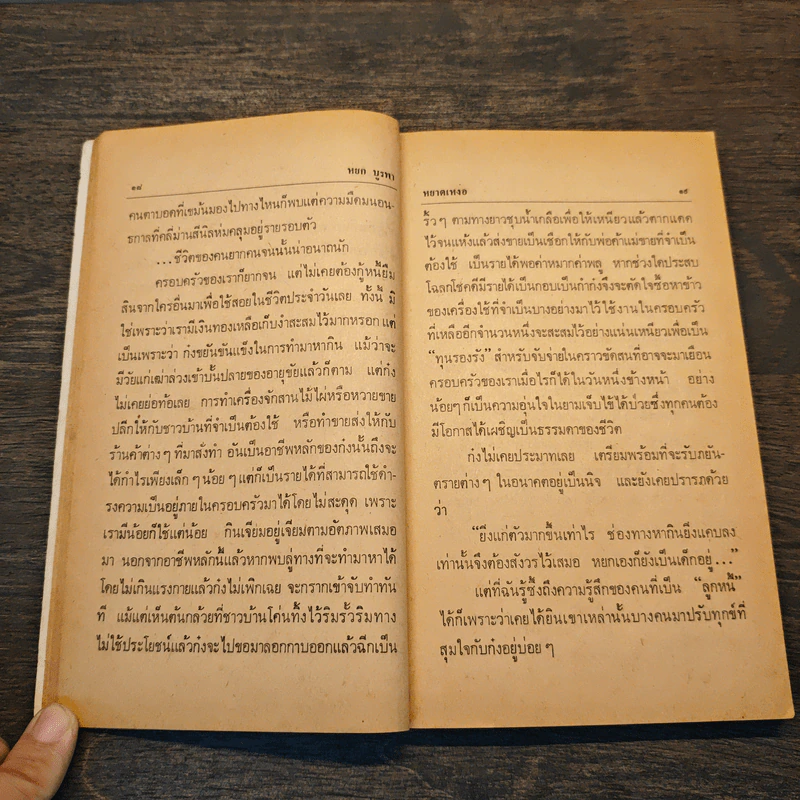 ๑๘
หยก บูรพา
คนตาบอดที่เขม้นมองไปทางไหนก็พบแต่ความมืดมนอน-
ธกาลที่คลี่ม่านสีนิลห่มคลุมอยู่รายรอบตัว
...ชีวิตของคนยากคนจนนั้นน่าอนาถนัก
ครอบครัวของเราก็ยากจน แต่ไม่เคยต้องกู้หนี้ยืม
สินจากใครอื่นมาเพื่อใช้สอยในชีวิตประจำวันเลย ทั้งนี้ มิ
ใช่เพราะว่าเรามีเงินทองเหลือเก็บงำสะสมไว้มากหรอก แต่
เป็นเพราะว่า ก๋งขยันขันแข็งในการทำมาหากิน แม้ว่าจะ
มีวัยแก่เฒ่าล่วงเข้าบั้นปลายของอายุขัยแล้วก็ตาม แต่ก๋ง
ไม่เคยย่อท้อเลย การทำเครื่องจักสานไม้ไผ่หรือหวายขาย
ปลีกให้กับชาวบ้านที่จำเป็นต้องใช้ หรือทำขายส่งให้กับ
ร้านค้าต่างๆ ที่มาสั่งทำ อันเป็นอาชีพหลักของก๋งนั้นถึงจะ
ได้กำไรเพียงเล็กๆ น้อยๆ แต่ก็เป็นรายได้ที่สามารถใช้ดำ-
รงความเป็นอยู่ภายในครอบครัวมาได้โดยไม่สะดุด เพราะ
เรามีน้อยก็ใช้แต่น้อย กินเจียมอยู่เจียมตามอัตภาพเสมอ
มา นอกจากอาชีพหลักนี้แล้วหากพบลู่ทางที่จะทำมาหาได้
โดยไม่เกินแรงกายแล้วก๋งไม่เพิกเฉย จะกรากเข้าจับทำทัน
ที แม้แต่เห็นต้นกล้วยที่ชาวบ้านโค่นทิ้งไว้ริมรั้วริมทาง
ไม่ใช้ประโยชน์แล้วก๋งจะไปขอมาลอกกาบออกแล้วฉีกเป็น
หยาดเหงื่อ
๑๙
ริ้วๆ ตามทางยาวชุบน้ำเกลือเพื่อให้เหนียวแล้วตากแดด
ไว้จนแห้งแล้วส่งขายเป็นเชือกให้กับพ่อค้าแม่ขายที่จำเป็น
ต้องใช้ เป็นรายได้พอค่าหมากค่าพลู หากช่วงใดประสบ
โฉลกโชคดีมีรายได้เป็นกอบเป็นกำก๋งจึงจะตัดใจซื้อหาข้าว
ของเครื่องใช้ที่จำเป็นบางอย่างมาไว้ใช้งานในครอบครัว
ที่เหลืออีกจำนวนหนึ่งจะสะสมไว้อย่างแน่นเหนียวเพื่อเป็น
“ทุนรองรัง” สำหรับจับจ่ายในคราวขัดสนที่อาจจะมาเยือน
ครอบครัวของเราเมื่อไรก็ได้ในวันหนึ่งข้างหน้า อย่าง
น้อยๆ ก็เป็นความอุ่นใจในยามเจ็บไข้ได้ป่วยซึ่งทุกคนต้อง
มีโอกาสได้เผชิญเป็นธรรมดาของชีวิต
ก๋งไม่เคยประมาทเลย เตรียมพร้อมที่จะรับภยัน-
ตรายต่างๆ ในอนาคตอยู่เป็นนิจ และยังเคยปรารภด้วย
ว่า
“ยิ่งแก่ตัวมากขึ้นเท่าไร ช่องทางหากินยิ่งแคบลง
เท่านั้นจึงต้องสังวรไว้เสมอ หยกเองก็ยังเป็นเด็กอยู่...”
แต่ที่ฉันรู้ซึ้งถึงความรู้สึกของคนที่เป็น “ลูกหนี้”
ได้ก็เพราะว่าเคยได้ยินเขาเหล่านั้นบางคนมาปรับทุกข์ที่
สุมใจกับก๋งอยู่บ่อยๆ